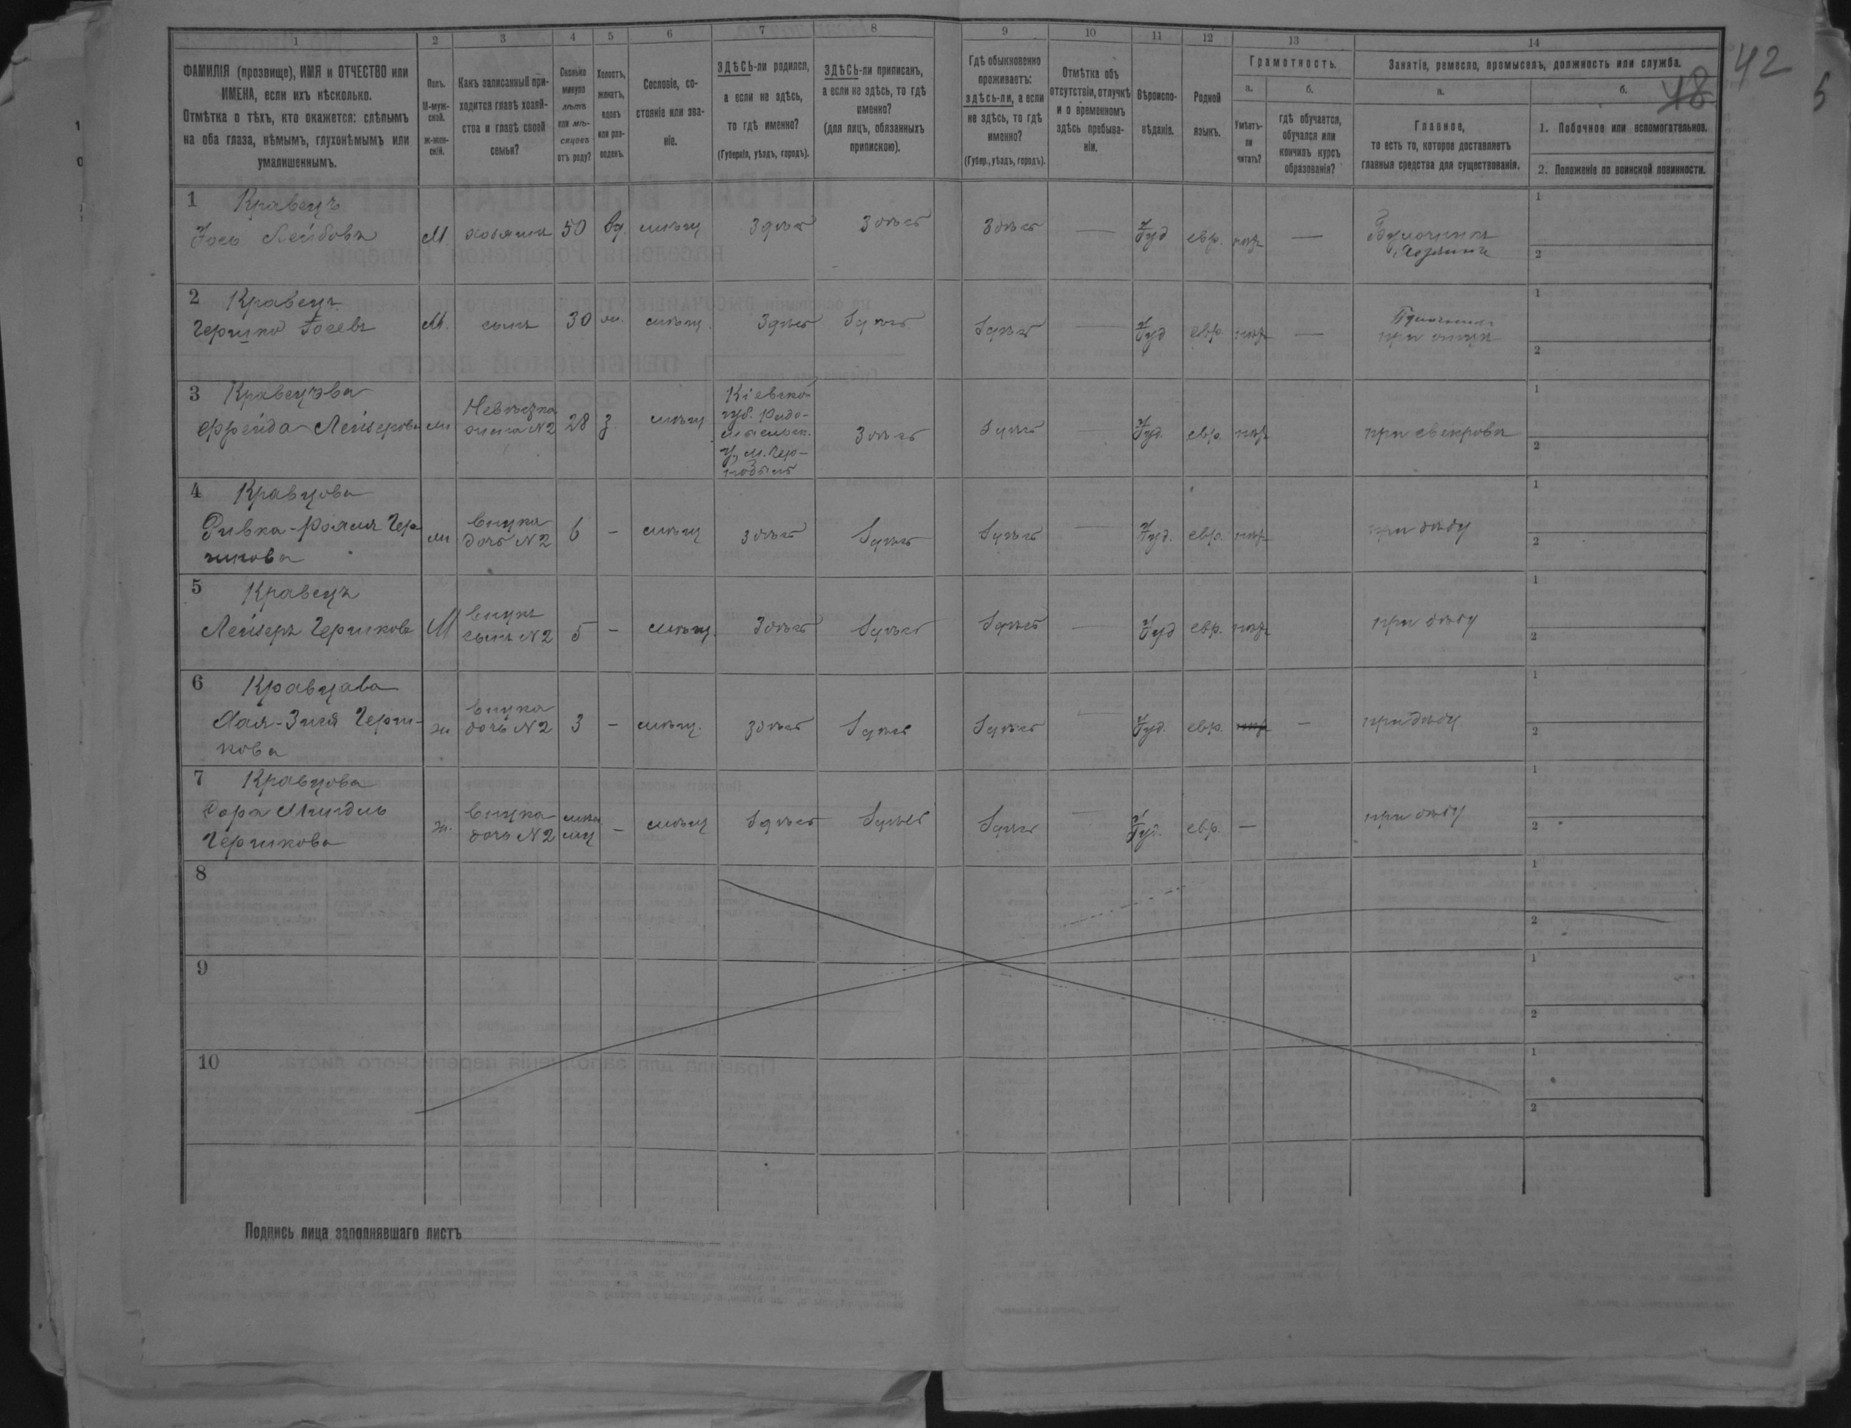 42
48
5
1 2 3 4 5 6 7 8 9 10 11 12 13 14
ФАМИЛІЯ (прозвище), ИМЯ и ОТЧЕСТВО или
ИМЕНА, если ихъ нѣсколько.
Отмѣтка о тѣхъ, кто окажется: слѣпымъ
на оба глаза, нѣмымъ, глухонѣмымъ или
умалишеннымъ.
Полъ.
М-муж-
ской.
Ж-жен-
скій.
Какъ записанный при-
ходится главѣ хозяй-
ства и главѣ своей
семьи?
Сколько
минуло
лѣтъ
или мѣ-
сяцевъ
отъ роду?
Холостъ,
женатъ,
вдовъ
или раз-
веденъ.
Сословіе, со-
стояніе или зва-
ніе.
ЗДѢСЬ-ли родился,
а если не здѣсь,
то гдѣ именно?
(Губернія, уѣздъ, городъ).
ЗДѢСЬ-ли приписанъ,
а если не здѣсь, то гдѣ
именно?
(для лицъ, обязанныхъ
припискою).
Гдѣ обыкновенно
проживаетъ:
здѣсь-ли, а если
не здѣсь, то гдѣ
именно?
(Губер., уѣздъ, городъ).
Отмѣтка объ
отсутствіи, отлучкѣ
и о временномъ
здѣсь пребыва-
ніи.
Вѣроиспо-
вѣданіе.
Родной
языкъ.
Грамотность.
а.
Умѣетъ-
ли
читать?
б.
гдѣ обучается,
обучался или
кончилъ курсъ
образованія?
Занятіе, ремесло, промыселъ, должность или служба.
а.
Главное,
то есть то, которое доставляетъ
главныя средства для существованія.
б.
1. Побочное или вспомогательное.
2. Положеніе по воинской повинности.
1 Кравецъ
Іось Лейбовъ М. хозяинъ 50 вд. мѣщ здѣсь здѣсь здѣсь — Іуд евр. негр —
хозяинъ
1
2
2 Кравецъ
Гершко Іосевъ М. сынъ 30 мѣщ. здѣсь здѣсь здѣсь — Іуд евр. негр —
при отцѣ
1
2
3 Кравецова
Фрейда Лейзерова Невѣстка
жена №2 28 з. мѣщ
Кіевской
губ. Радо-
мысльск.
у., м. Чер-
нобыль
здѣсь здѣсь Іуд. евр. негр при свекровѣ
1
2
4 Кравцова
Ривка-Рохля Гер
шкова внучка
дочь №2 6 — мѣщ здѣсь здѣсь здѣсь — Іуд. евр. негр при дѣду
1
2
5 Кравецъ
Лейзеръ Гершковъ М внукъ
сынъ №2 5 — мѣщ. здѣсь здѣсь здѣсь — Іуд евр. негр при дѣду
1
2
6 Кравцова
Гершкова
ж. внучка
дочь №2 3 — мѣщ. здѣсь здѣсь здѣсь — Іуд. евр. негр — при дѣду
1
2
7 Кравцова
Миндль
Гершкова ж. внучка
дочь №2 — мѣщ здѣсь здѣсь здѣсь — Іуд. евр. — при дѣду
1
2
8
1
2
9
1
2
10
1
2
Подпись лица заполнявшаго листъ